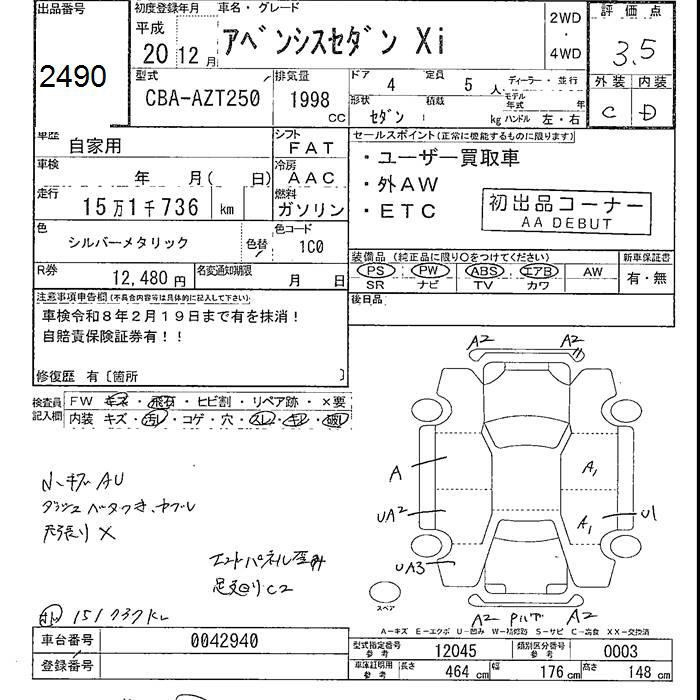 出品番号
2490
初度登録年月
平成
20 12月
車名・グレード
アベンシスセダン Xi
2WD
・
4WD
評価点
3.5
外装 内装
C D
型式
CBA-AZT250
排気量
1998 CC
ドア 4
定員 5 人
ディーラー・並行
形状 セダン
積載 kg
モデル年式 年
ハンドル 左・右
車歴
自家用
シフト
FAT
車検
年 月( 日)
冷房
AAC
走行
15万1千736 km
燃料
ガソリン
色
シルバーメタリック
色替
色コード
1C0
R券
12,480円
名変通知期限
月 日
セールスポイント(正常に機能するものに限ります)
・ユーザー買取車
・外AW
・ETC
初出品コーナー
AA DEBUT
装備品 (純正品に限り○をつけてください)
PS PW ABS エアB AW
SR ナビ TV カワ
新車保証書
有・無
後日品
注意事項申告欄(不具合内容等は具体的に記入して下さい)
車検令和8年2月19日まで有を抹消!
自賠責保険証券有!!
修復歴 有〔箇所 〕
検査員記入欄
FW キズ・飛石・ヒビ割・リペア跡・×要
内装 キズ・汚レ・コゲ・穴・スレ・キレ・破レ
ルーキズ AU
ダッシュ ベタつき、
天張り ×
エンドパネル歪み
足廻りC2
151737KL
A2 A2
A
A1
UA2
A1
U1
UA3
スペア
A2 A2
A-キズ E-エクボ U-凹み W-補修跡 S-サビ C-腐食 XX-交換済
車台番号
0042940
登録番号
型式指定番号 参考
12045
類別区分番号 参考
0003
車庫証明用 参考
長さ 464 cm
幅 176 cm
高さ 148 cm